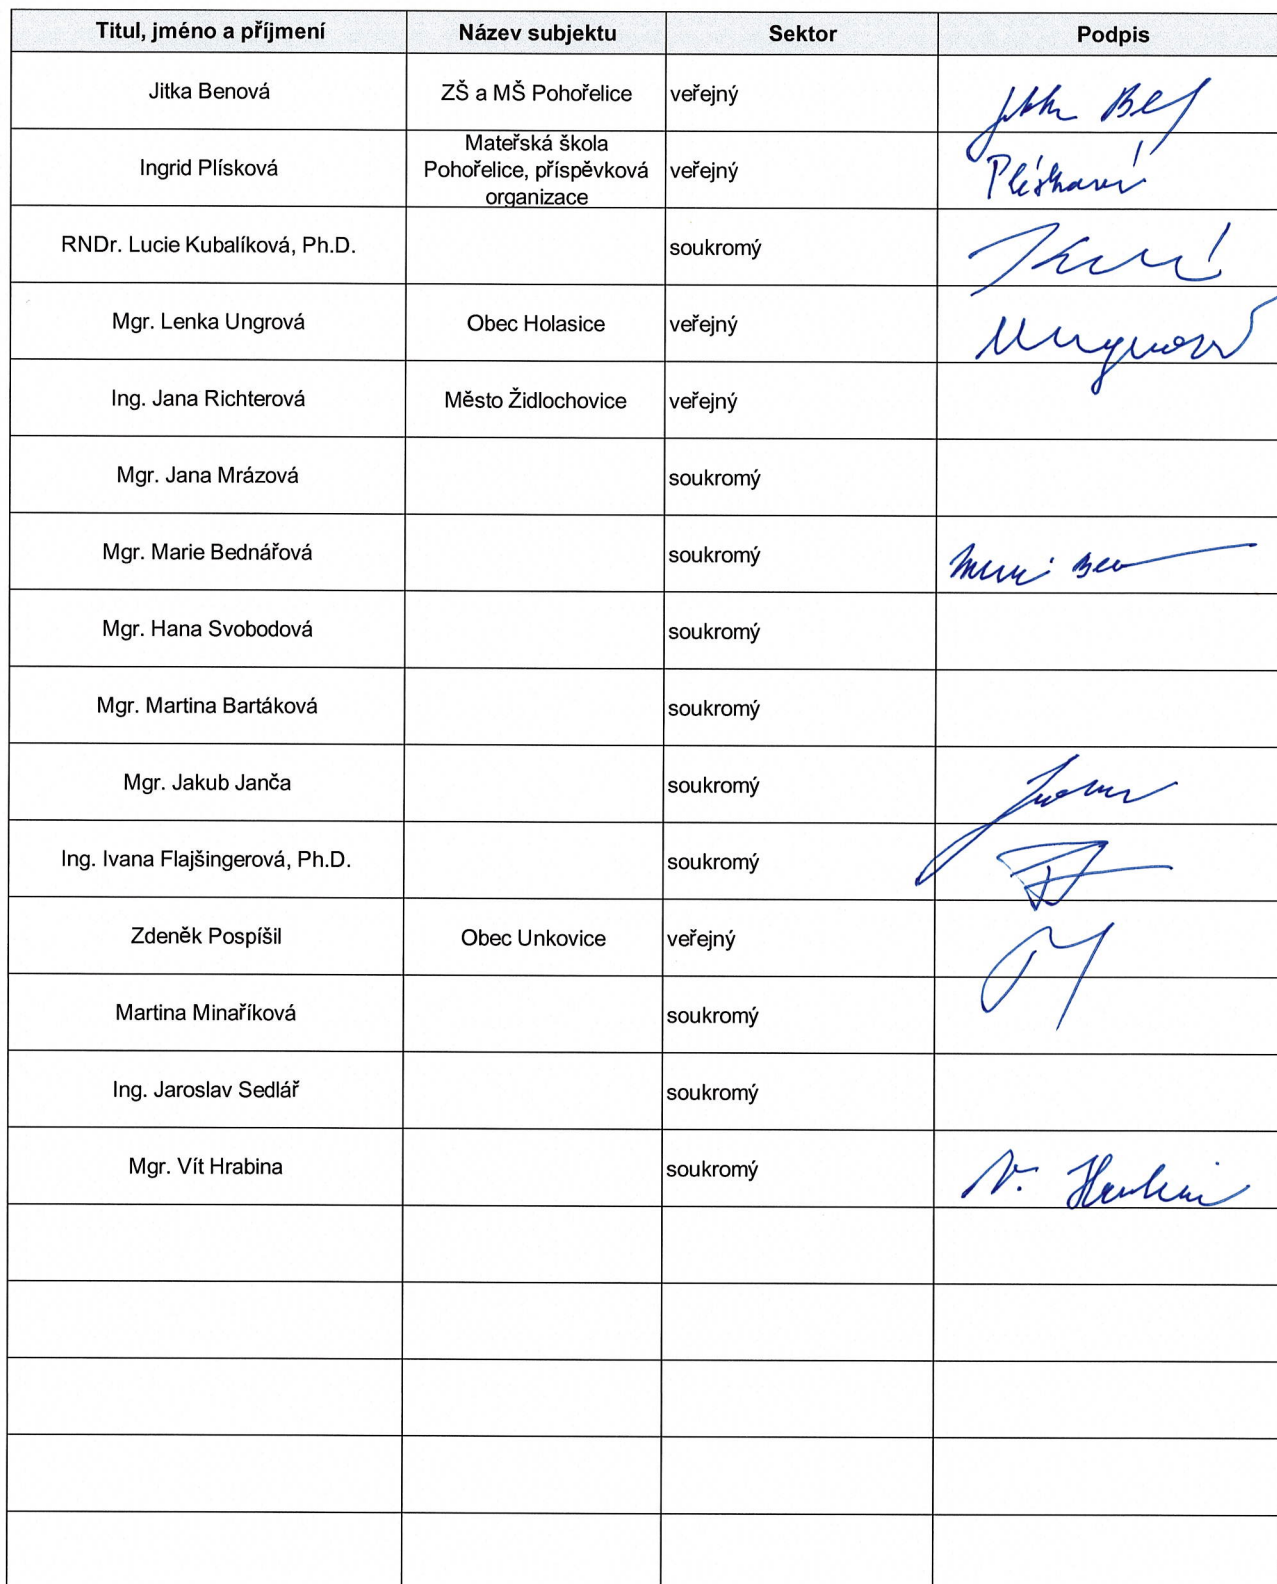 Titul, jméno a příjmení Název subjektu Sektor Podpis
Jitka Benová ZŠ a MŠ Pohořelice veřejný
Mateřská škola
Ingrid Plísková Pohořelice, příspěvková veřejný Plísková
organizace
RNDr. Lucie Kubalíková, Ph.D. soukromý
Mgr. Lenka Ungrová Obec Holasice veřejný
Ing. Jana Richterová Město Židlochovice veřejný
Mgr. Jana Mrázová soukromý
Mgr. Marie Bednářová soukromý
Mgr. Hana Svobodová soukromý
Mgr. Martina Bartáková soukromý
Mgr. Jakub Janča soukromý
Ing. Ivana Flajšingerová, Ph.D. soukromý
Zdeněk Pospíšil Obec Unkovice veřejný
Martina Minaříková soukromý
Ing. Jaroslav Sedlář soukromý
Mgr. Vít Hrabina soukromý